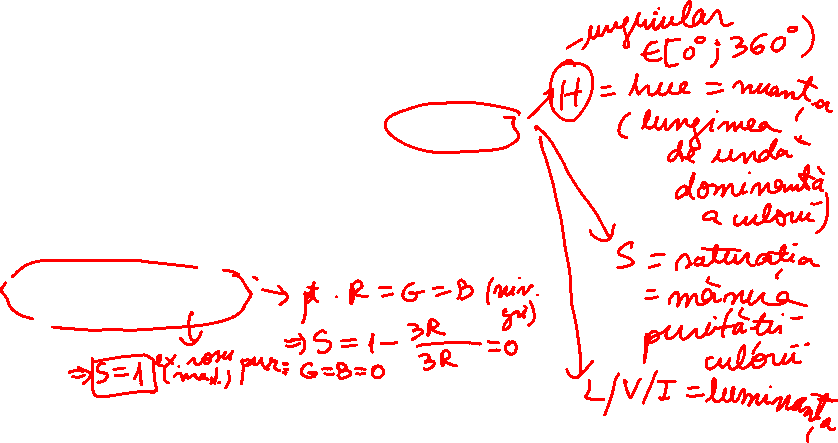 unghiular
∈[0°; 360°)
H = hue = nuanța
(lungimea
de undă
dominantă
a culorii)
S = saturația
= măsura
purității
culorii
L/V/I = luminanța
→ pt. R = G = B (niv. gri)
⇒ S = 1 - 3R/3R = 0
⇒ S=1 ex. roșu pur: G=B=0